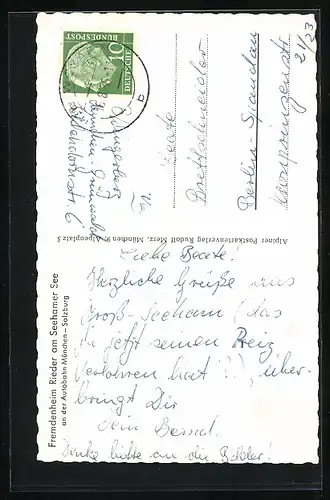 Fremdenheim Rieder am Seehamer See
an der Autobahn München-Salzburg
Liebe Beate!
Herzliche Grüße aus
Groß-Seeham (das
für jetzt seinen Reiz
verloren hat!!), über-
bringt Dir
Dein Bernd.
Denke bitte an die Bilder!
Alpiner Postkartenverlag Rudolf Merz, München 9, Alpenplatz 5
München-Grünwald
Frl.
Beate
Brettschneider
Berlin-Spandau
21/23
10
DEUTSCHE
BUNDESPOST
b